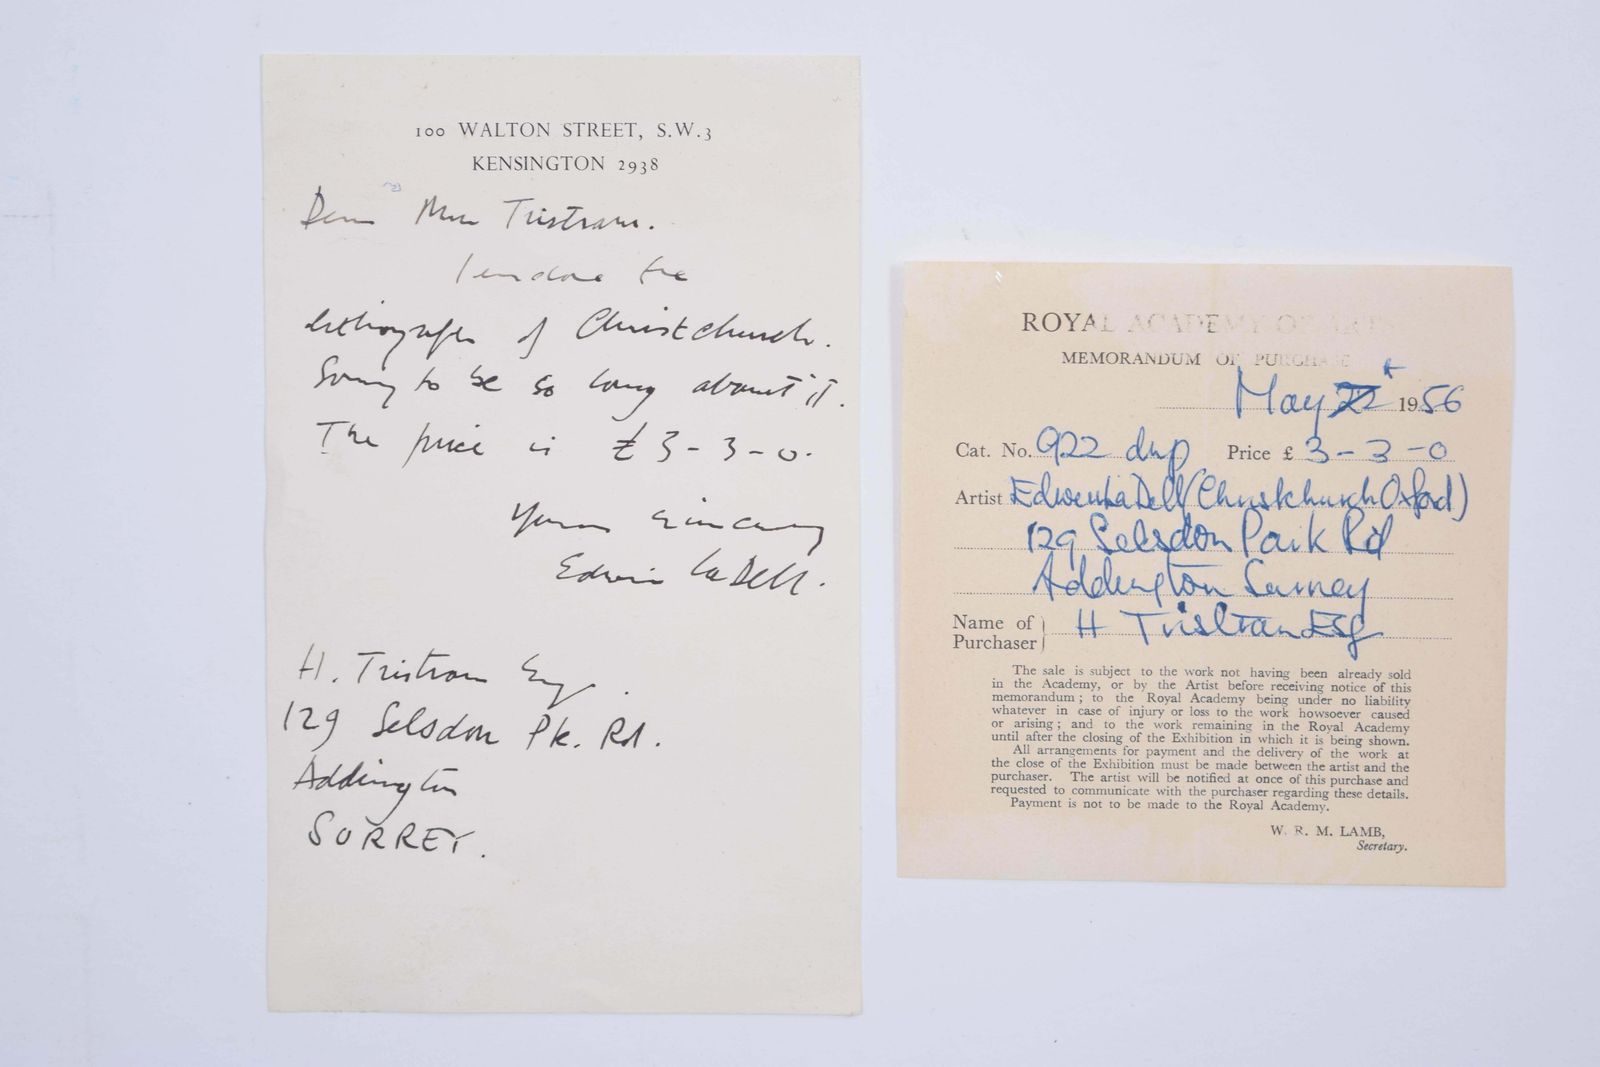 100 WALTON STREET, S.W.3
KENSINGTON 2938
Dear Tristram.
I enclose the
lithograph of Christchurch.
Sorry to be so long about it.
The price is £3-3-0.
Yours sincerely
Edwin LaDell.
H. Tristram Esq.
129 Selsdon Pk. Rd.
Addington
SURREY.
ROYAL ACADEMY OF ARTS
MEMORANDUM OF PURCHASE
May 1956
Cat. No. 922 dup Price £ 3-3-0
Artist Edwin LaDell (Christchurch Oxford)
129 Selsdon Park Rd
Addington Surrey
Name of Purchaser } H Tristram Esq
The sale is subject to the work not having been already sold
in the Academy, or by the Artist before receiving notice of this
memorandum; to the Royal Academy being under no liability
whatever in case of injury or loss to the work howsoever caused
or arising; and to the work remaining in the Royal Academy
until after the closing of the Exhibition in which it is being shown.
All arrangements for payment and the delivery of the work at
the close of the Exhibition must be made between the artist and the
purchaser. The artist will be notified at once of this purchase and
requested to communicate with the purchaser regarding these details.
Payment is not to be made to the Royal Academy.
W. R. M. LAMB,
Secretary.